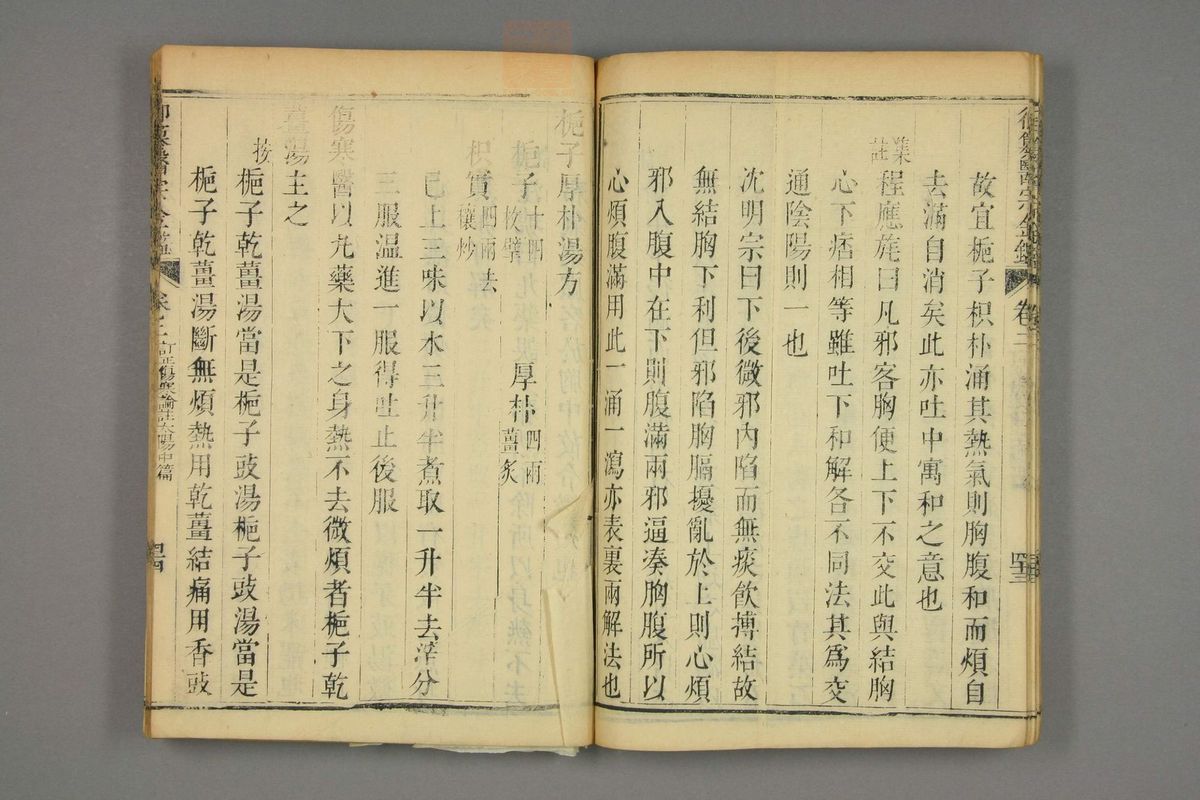 御纂醫宗金鑑
卷二
四十三
故宜梔子枳朴涌其熱氣則胸腹和而煩自
去滿自消矣此亦吐中寓和之意也
集註
程應旄曰凡邪客胸便上下不交此與結胸
心下痞相等雖吐下和解各不同法其為交
通陰陽則一也
沈明宗曰下後微邪內陷而無痰飲搏結故
無結胸下利但邪陷胸膈擾亂於上則心煩
邪入腹中在下則腹滿兩邪逼湊胸腹所以
心煩腹滿用此一涌一瀉亦表裏兩解法也
梔子厚朴湯方
梔子十四枚擘 厚朴四兩薑炙
枳實四兩去穰炒
已上三味以水三升半煮取一升半去滓分
三服溫進一服得吐止後服
傷寒醫以丸藥大下之身熱不去微煩者梔子乾
薑湯主之
按
梔子乾薑湯當是梔子豉湯梔子豉湯當是
梔子乾薑湯斷無煩熱用乾薑結痛用香豉
御纂醫宗金鑑
卷二
訂正傷寒論註太陽中篇
四十四